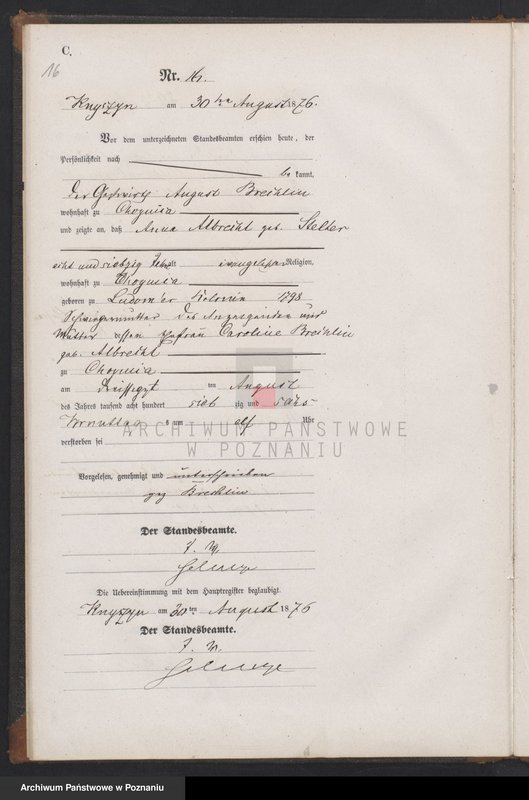 C.
16
Nr. 16.
Knyszyn am 30ten August 1876.
Vor dem unterzeichneten Standesbeamten erschien heute, der
Persönlichkeit nach
be kannt,
der August Breihlin
wohnhaft zu Chojnica
und zeigte an, daß Anna Albrecht geb. Stelter
acht und siebzig Jahre evangelischer Religion,
wohnhaft zu Chojnica
geboren zu Kolonie 1798
Schwiegermutter des Anzeigenden und
Mutter dessen Ehefrau Caroline Breihlin
geb. Albrecht
zu Chojnica
am ten August
des Jahres tausend acht hundert sieb zig und sechs
Vormittag s um elf Uhr
verstorben sei
ARCHIWUM PAŃSTWOWE
W POZNANIU
Vorgelesen, genehmigt und unterschrieben
gez Breihlin
Der Standesbeamte.
Die Uebereinstimmung mit dem Hauptregister beglaubigt.
Knyszyn am 30ten August 1876
Der Standesbeamte.
Archiwum Państwowe w Poznaniu